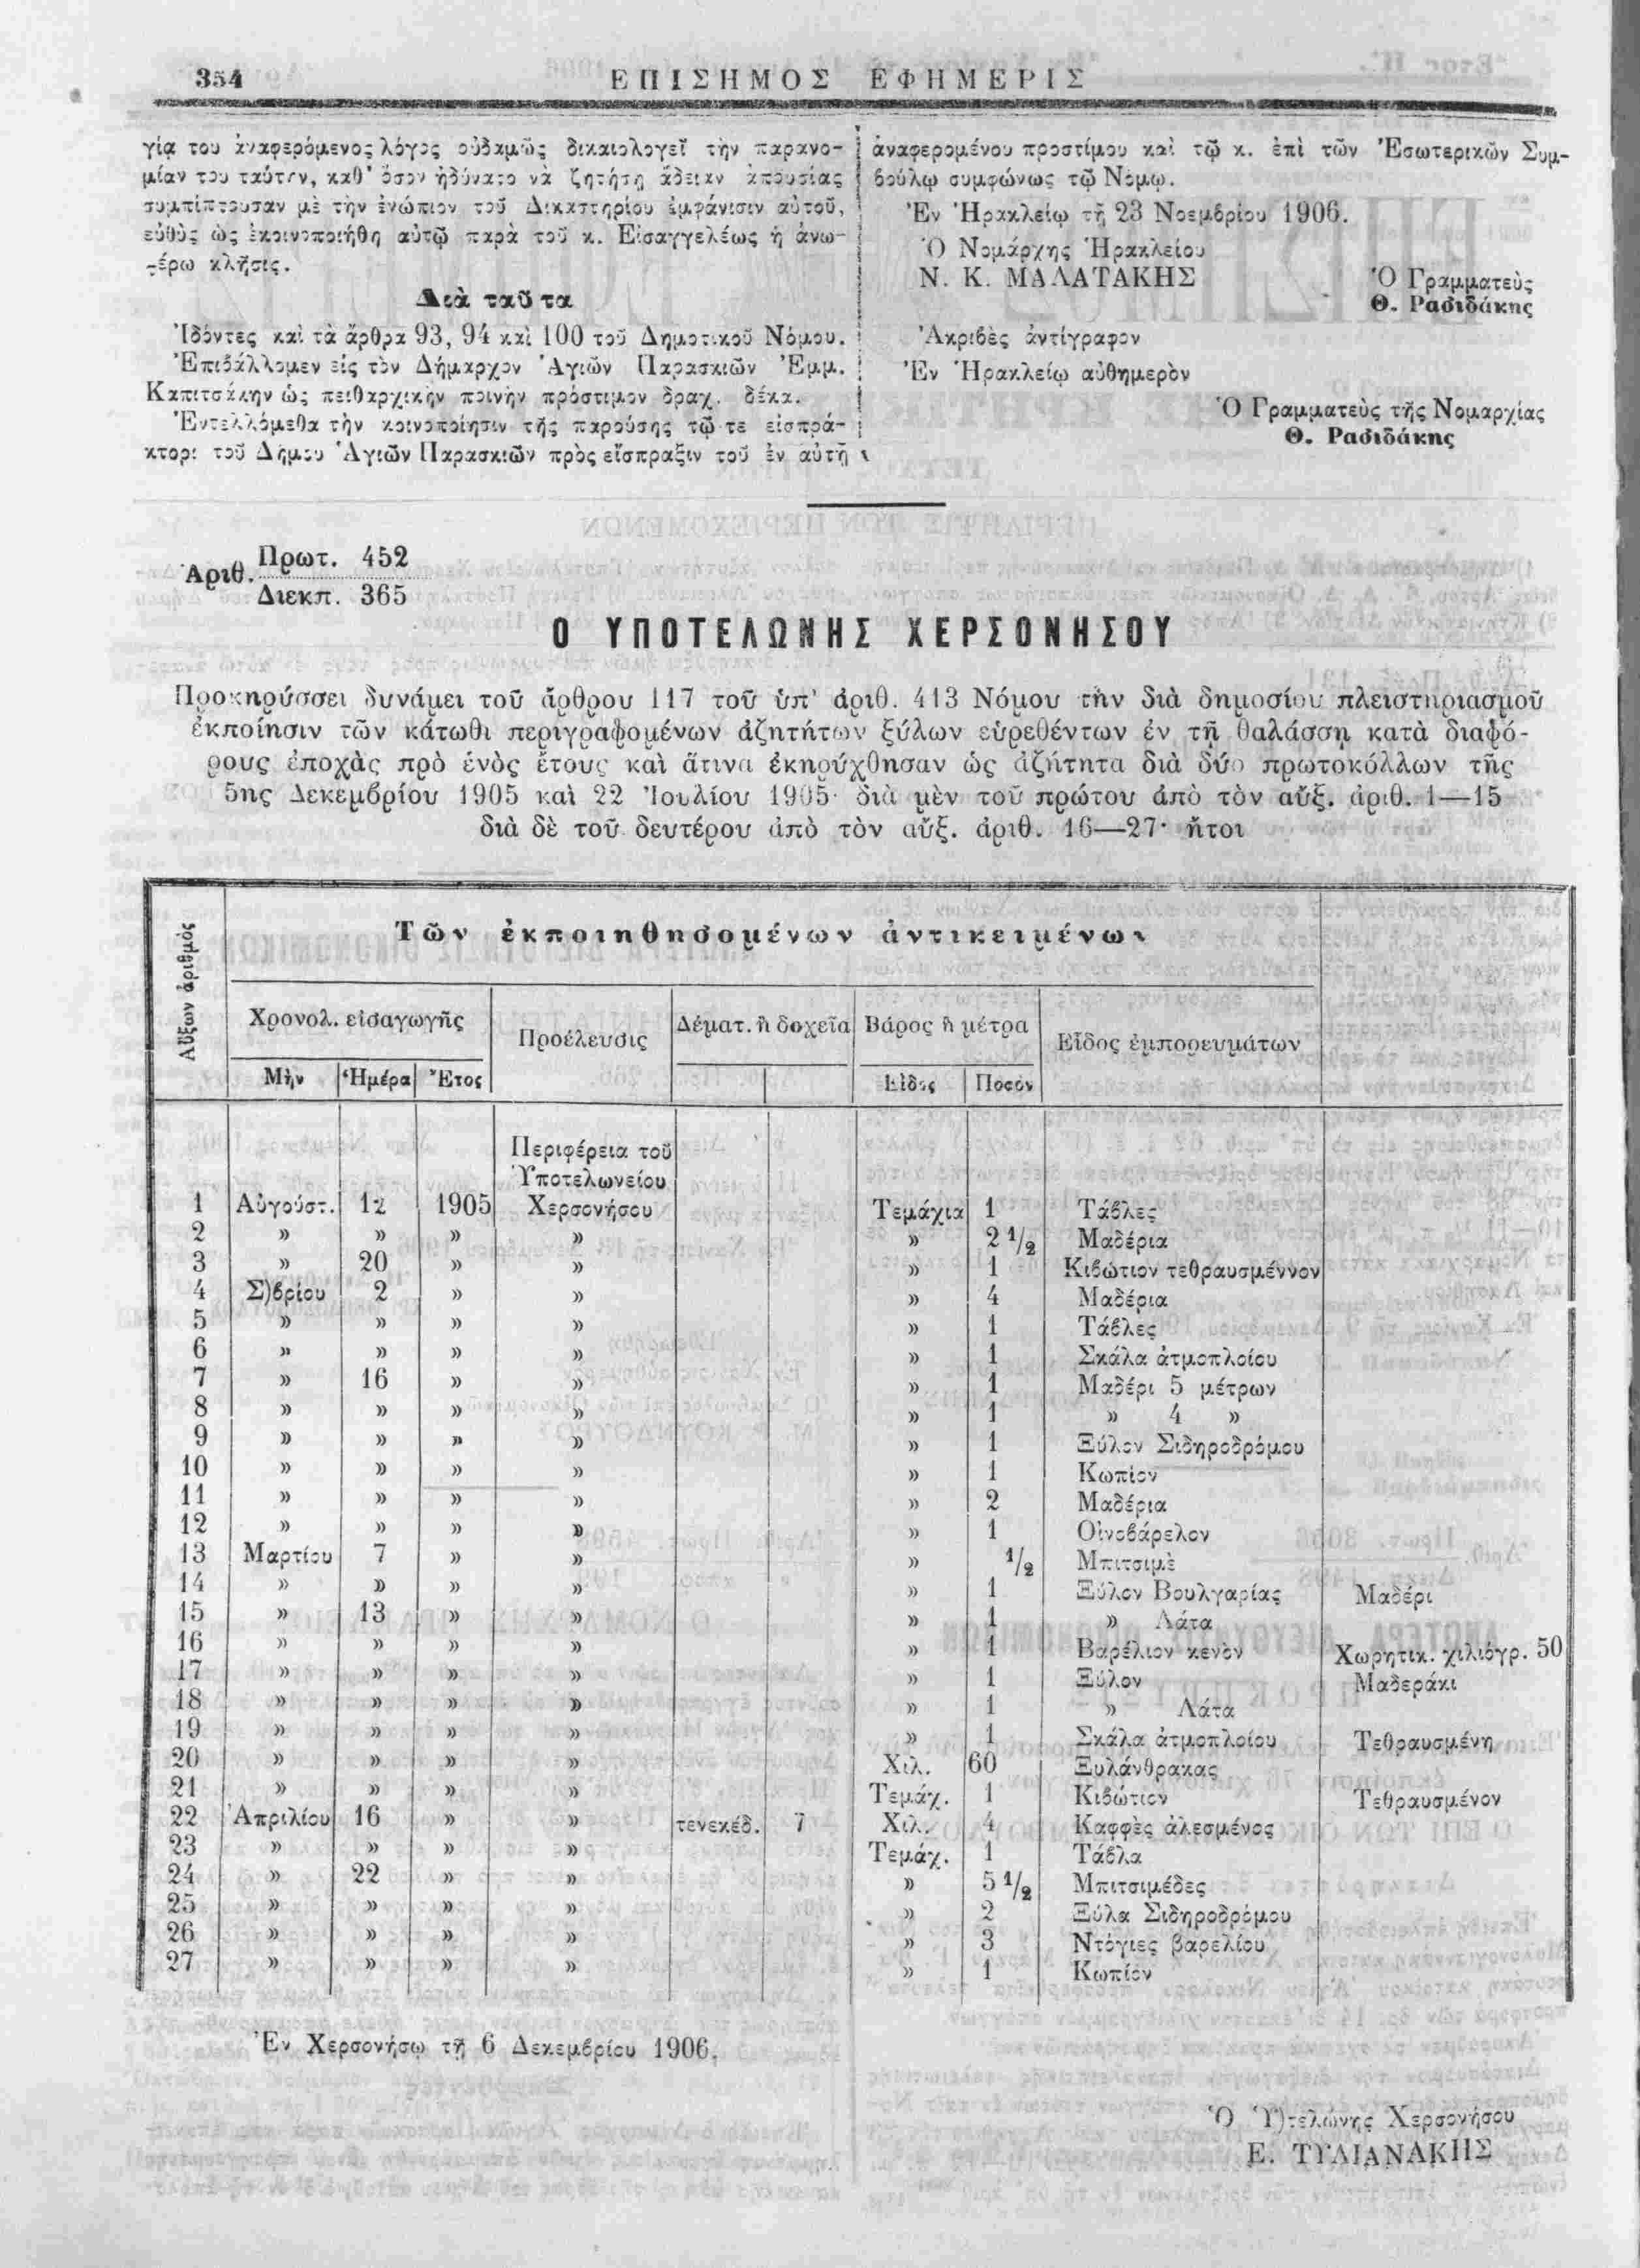 354
ΕΠΙΣΗΜΟΣ ΕΦΗΜΕΡΙΣ
γία του ἀναφερόμενος λόγος οὐδαμῶς δικαιολογεῖ τὴν παρανο-
μίαν του ταύτην, καθ' ὅσον ἠδύνατο νὰ ζητήσῃ ἄδειαν ἀπουσίας
συμπίπτουσαν μὲ τὴν ἐνώπιον τοῦ Δικαστηρίου ἐμφάνισιν αὐτοῦ,
εὐθὺς ὡς ἐκοινοποιήθη αὐτῷ παρὰ τοῦ κ. Εἰσαγγελέως ἡ ἀνω-
τέρω κλῆσις.
Διὰ ταῦτα
Ἰδόντες καὶ τὰ ἄρθρα 93, 94 καὶ 100 τοῦ Δημοτικοῦ Νόμου.
Ἐπιβάλλομεν εἰς τὸν Δήμαρχον Ἁγιῶν Παρασκιῶν Ἐμμ.
Καπιτσάκην ὡς πειθαρχικὴν ποινὴν πρόστιμον δραχ. δέκα.
Ἐντελλόμεθα τὴν κοινοποίησιν τῆς παρούσης τῷ τε εἰσπρά-
κτορι τοῦ Δήμου Ἁγιῶν Παρασκιῶν πρὸς εἴσπραξιν τοῦ ἐν αὐτῇ
ἀναφερομένου προστίμου καὶ τῷ κ. ἐπὶ τῶν Ἐσωτερικῶν Συμ-
βούλῳ συμφώνως τῷ Νόμῳ.
Ἐν Ἡρακλείῳ τῇ 23 Νοεμβρίου 1906.
Ὁ Νομάρχης Ἡρακλείου
Ν. Κ. ΜΑΛΑΤΑΚΗΣ
Ὁ Γραμματεὺς
Θ. Ραδιδάκης
Ἀκριβὲς ἀντίγραφον
Ἐν Ἡρακλείῳ αὐθημερὸν
Ὁ Γραμματεὺς τῆς Νομαρχίας
Θ. Ραδιδάκης
Ἀριθ. Πρωτ. 452
Διεκπ. 365
Ο ΥΠΟΤΕΛΩΝΗΣ ΧΕΡΣΟΝΗΣΟΥ
Προκηρύσσει δυνάμει τοῦ ἄρθρου 117 τοῦ ὑπ' ἀριθ. 413 Νόμου τὴν διὰ δημοσίου πλειστηριασμοῦ
ἐκποίησιν τῶν κάτωθι περιγραφομένων ἀζητήτων ξύλων εὑρεθέντων ἐν τῇ θαλάσσῃ κατὰ διαφό-
ρους ἐποχὰς πρὸ ἑνὸς ἔτους καὶ ἅτινα ἐκηρύχθησαν ὡς ἀζήτητα διὰ δύο πρωτοκόλλων τῆς
5ης Δεκεμβρίου 1905 καὶ 22 Ἰουλίου 1905· διὰ μὲν τοῦ πρώτου ἀπὸ τὸν αὔξ. ἀριθ. 1—15
διὰ δὲ τοῦ δευτέρου ἀπὸ τὸν αὔξ. ἀριθ. 16—27· ἤτοι
Αὔξων ἀριθμὸς
Τῶν ἐκποιηθησομένων ἀντικειμένων
Χρονολ. εἰσαγωγῆς Προέλευσις Δέματ. ἢ δοχεῖα Βάρος ἢ μέτρα Εἶδος ἐμπορευμάτων
Μὴν Ἡμέρα Ἔτος Εἶδος Ποσὸν
Περιφέρεια τοῦ
Ὑποτελωνείου
1 Αὐγούστ. 12 1905 Χερσονήσου Τεμάχια 1 Τάβλες
2 » » » » » 2 1/2 Μαδέρια
3 » 20 » » » 1 Κιβώτιον τεθραυσμέννον
4 Σ)βρίου 2 » » » 4 Μαδέρια
5 » » » » » 1 Τάβλες
6 » » » » » 1 Σκάλα ἀτμοπλοίου
7 » 16 » » » 1 Μαδέρι 5 μέτρων
8 » » » » » 1 » 4 »
9 » » » » » 1 Ξύλον Σιδηροδρόμου
10 » » » » » 1 Κωπίον
11 » » » » » 2 Μαδέρια
12 » » » » » 1 Οἰνοβάρελον
13 Μαρτίου 7 » » » 1/2 Μπιτσιμὲ
14 » » » » » 1 Ξύλον Βουλγαρίας Μαδέρι
15 » 13 » » » 1 » Λάτα
16 » » » » » 1 Βαρέλιον κενὸν Χωρητικ. χιλιόγρ. 50
17 » » » » » 1 Ξύλον Μαδεράκι
18 » » » » » 1 » Λάτα
19 » » » » » 1 Σκάλα ἀτμοπλοίου Τεθραυσμένη
20 » » » » Χιλ. 60 Ξυλάνθρακας
21 » » » » Τεμάχ. 1 Κιβώτιον Τεθραυσμένον
22 Ἀπριλίου 16 » » τενεκέδ. 7 Χιλ. 4 Καφφὲς ἀλεσμένος
23 » » » » Τεμάχ. 1 Τάβλα
24 » 22 » » » 5 1/2 Μπιτσιμέδες
25 » » » » » 2 Ξύλα Σιδηροδρόμου
26 » » » » » 3 Ντόγιες βαρελίου
27 » » » » » 1 Κωπίον
Ἐν Χερσονήσῳ τῇ 6 Δεκεμβρίου 1906.
Ὁ Ὑ)τελώνης Χερσονήσου
Ε. ΤΥΛΙΑΝΑΚΗΣ